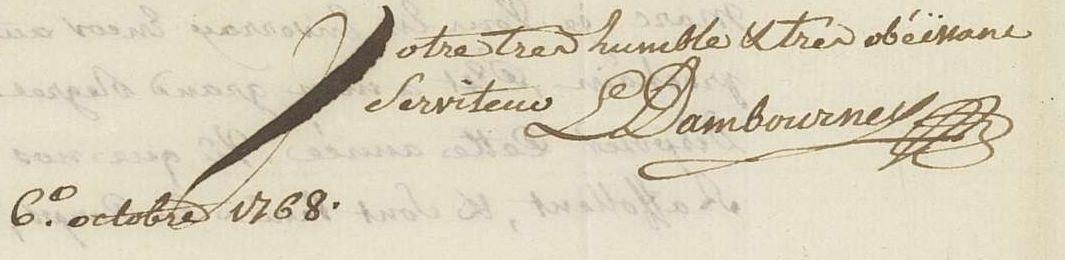 Votre tres humble & tres obéïssant
Serviteur Le Dambourney
6.º octobre 1768.